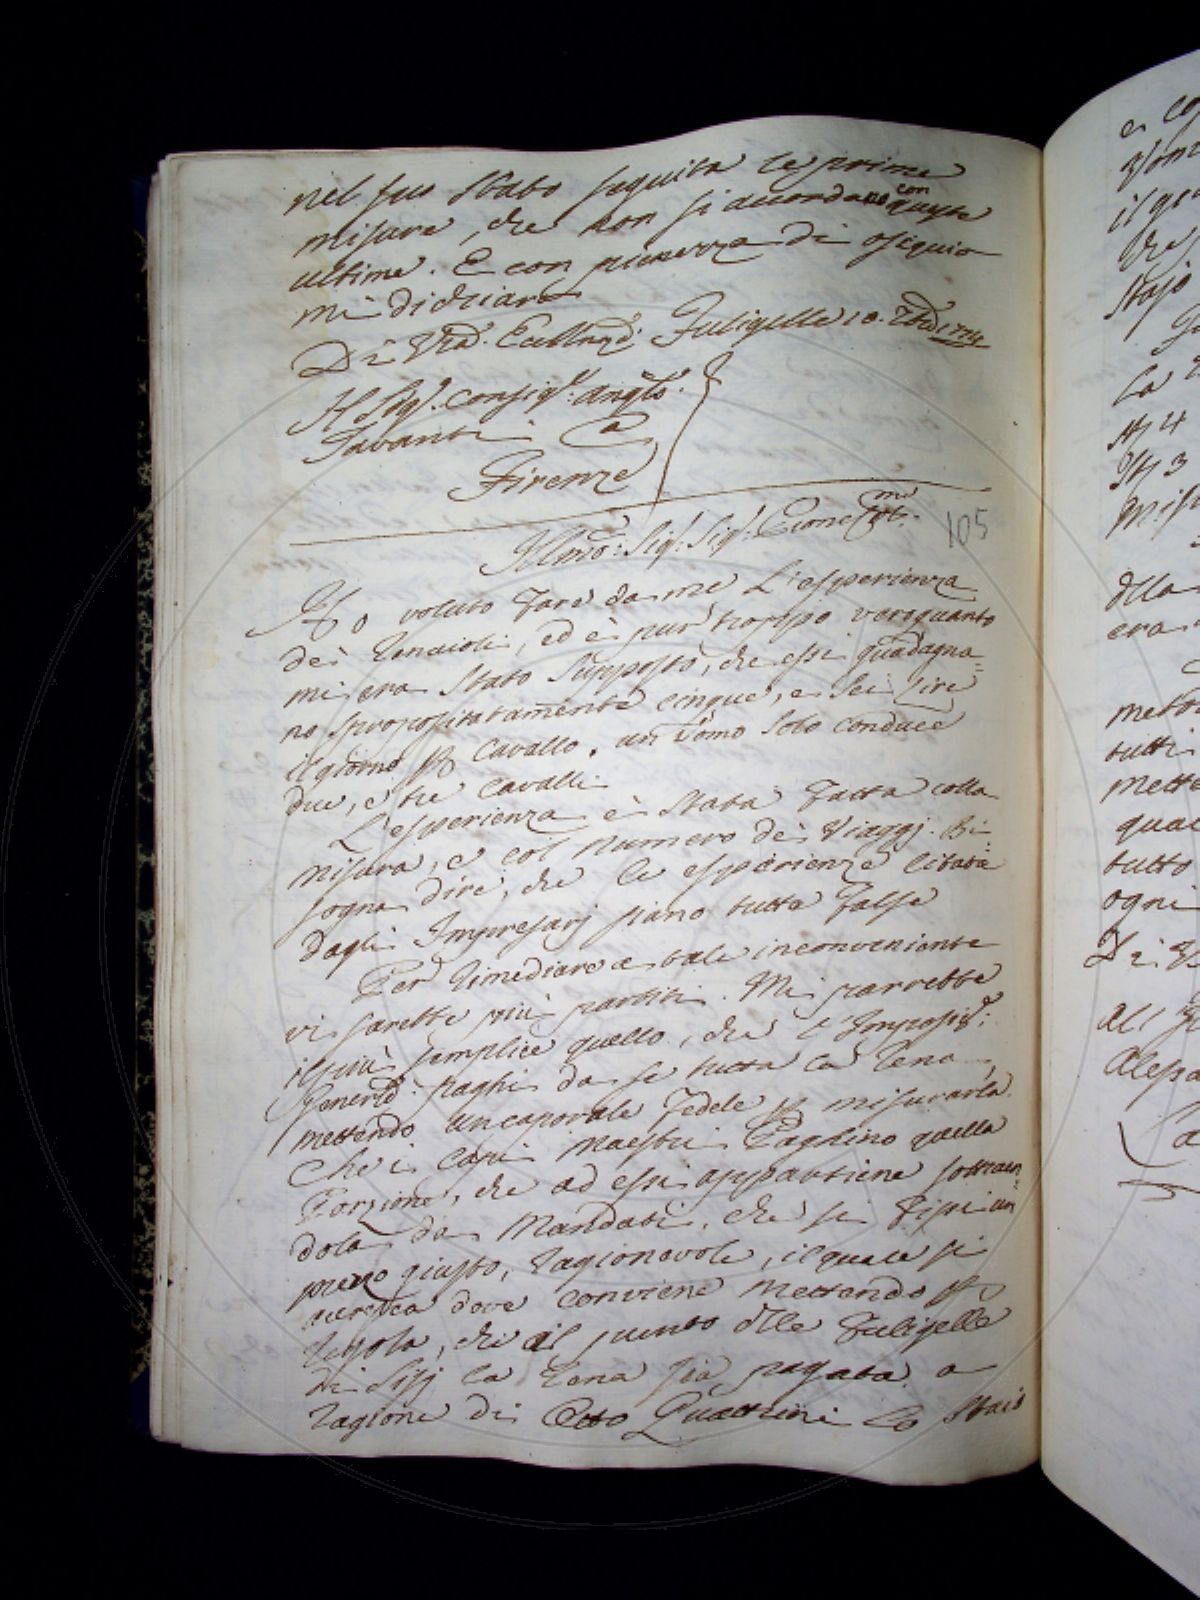 nel suo Stato seguita le prime
misure, che non si accordano con queste
ultime. E con pienezza di osequio
mi dichiaro
Di Vra. Fuligelle 10.
Al Sigr. Consigre: Angelo:
Tavanti Ca
Firenze
Illmo: Sigr: Sigr: Prone Colmo:
105
Ho voluto fare da me l'esperienza
dei Renaioli, ed è pur troppo vero quanto
mi era stato supposto, che essi guadagna=
no spropositatamente cinque, e sei lire
il giorno p Cavallo. un Uomo solo conduce
due, e tre Cavalli
L'esperienza è stata fatta colla
misura, e col numero dei Viaggj. Bi=
sogna dire, che le esperienze citate
dagli Impresarj siano tutte false
Per rimediare a tale inconveniente
vi sarebbe più partiti. Mi parrebbe
il più semplice quello, che l'
paghi da se tutta la Rena,
mettendo un caporale fedele p misurarla.
Che i Capi Maestri Paghino quella
Porzione, che ad essi appartiene sottraen=
dola da Mandati, che si fissi un
prezzo giusto, ragionevole, il quale si
accresca dove conviene mettendo p
regola, che al punto dlle Fuligelle
di la Rena sia pagata a
ragione di Otto Quattrini lo Staio
e co
il gio
che
Stajo
la
4
3
Misu
dlla
era
metto
tutti
mette
qual
tutto
ogni
Di V
Al
Alessa
Ca